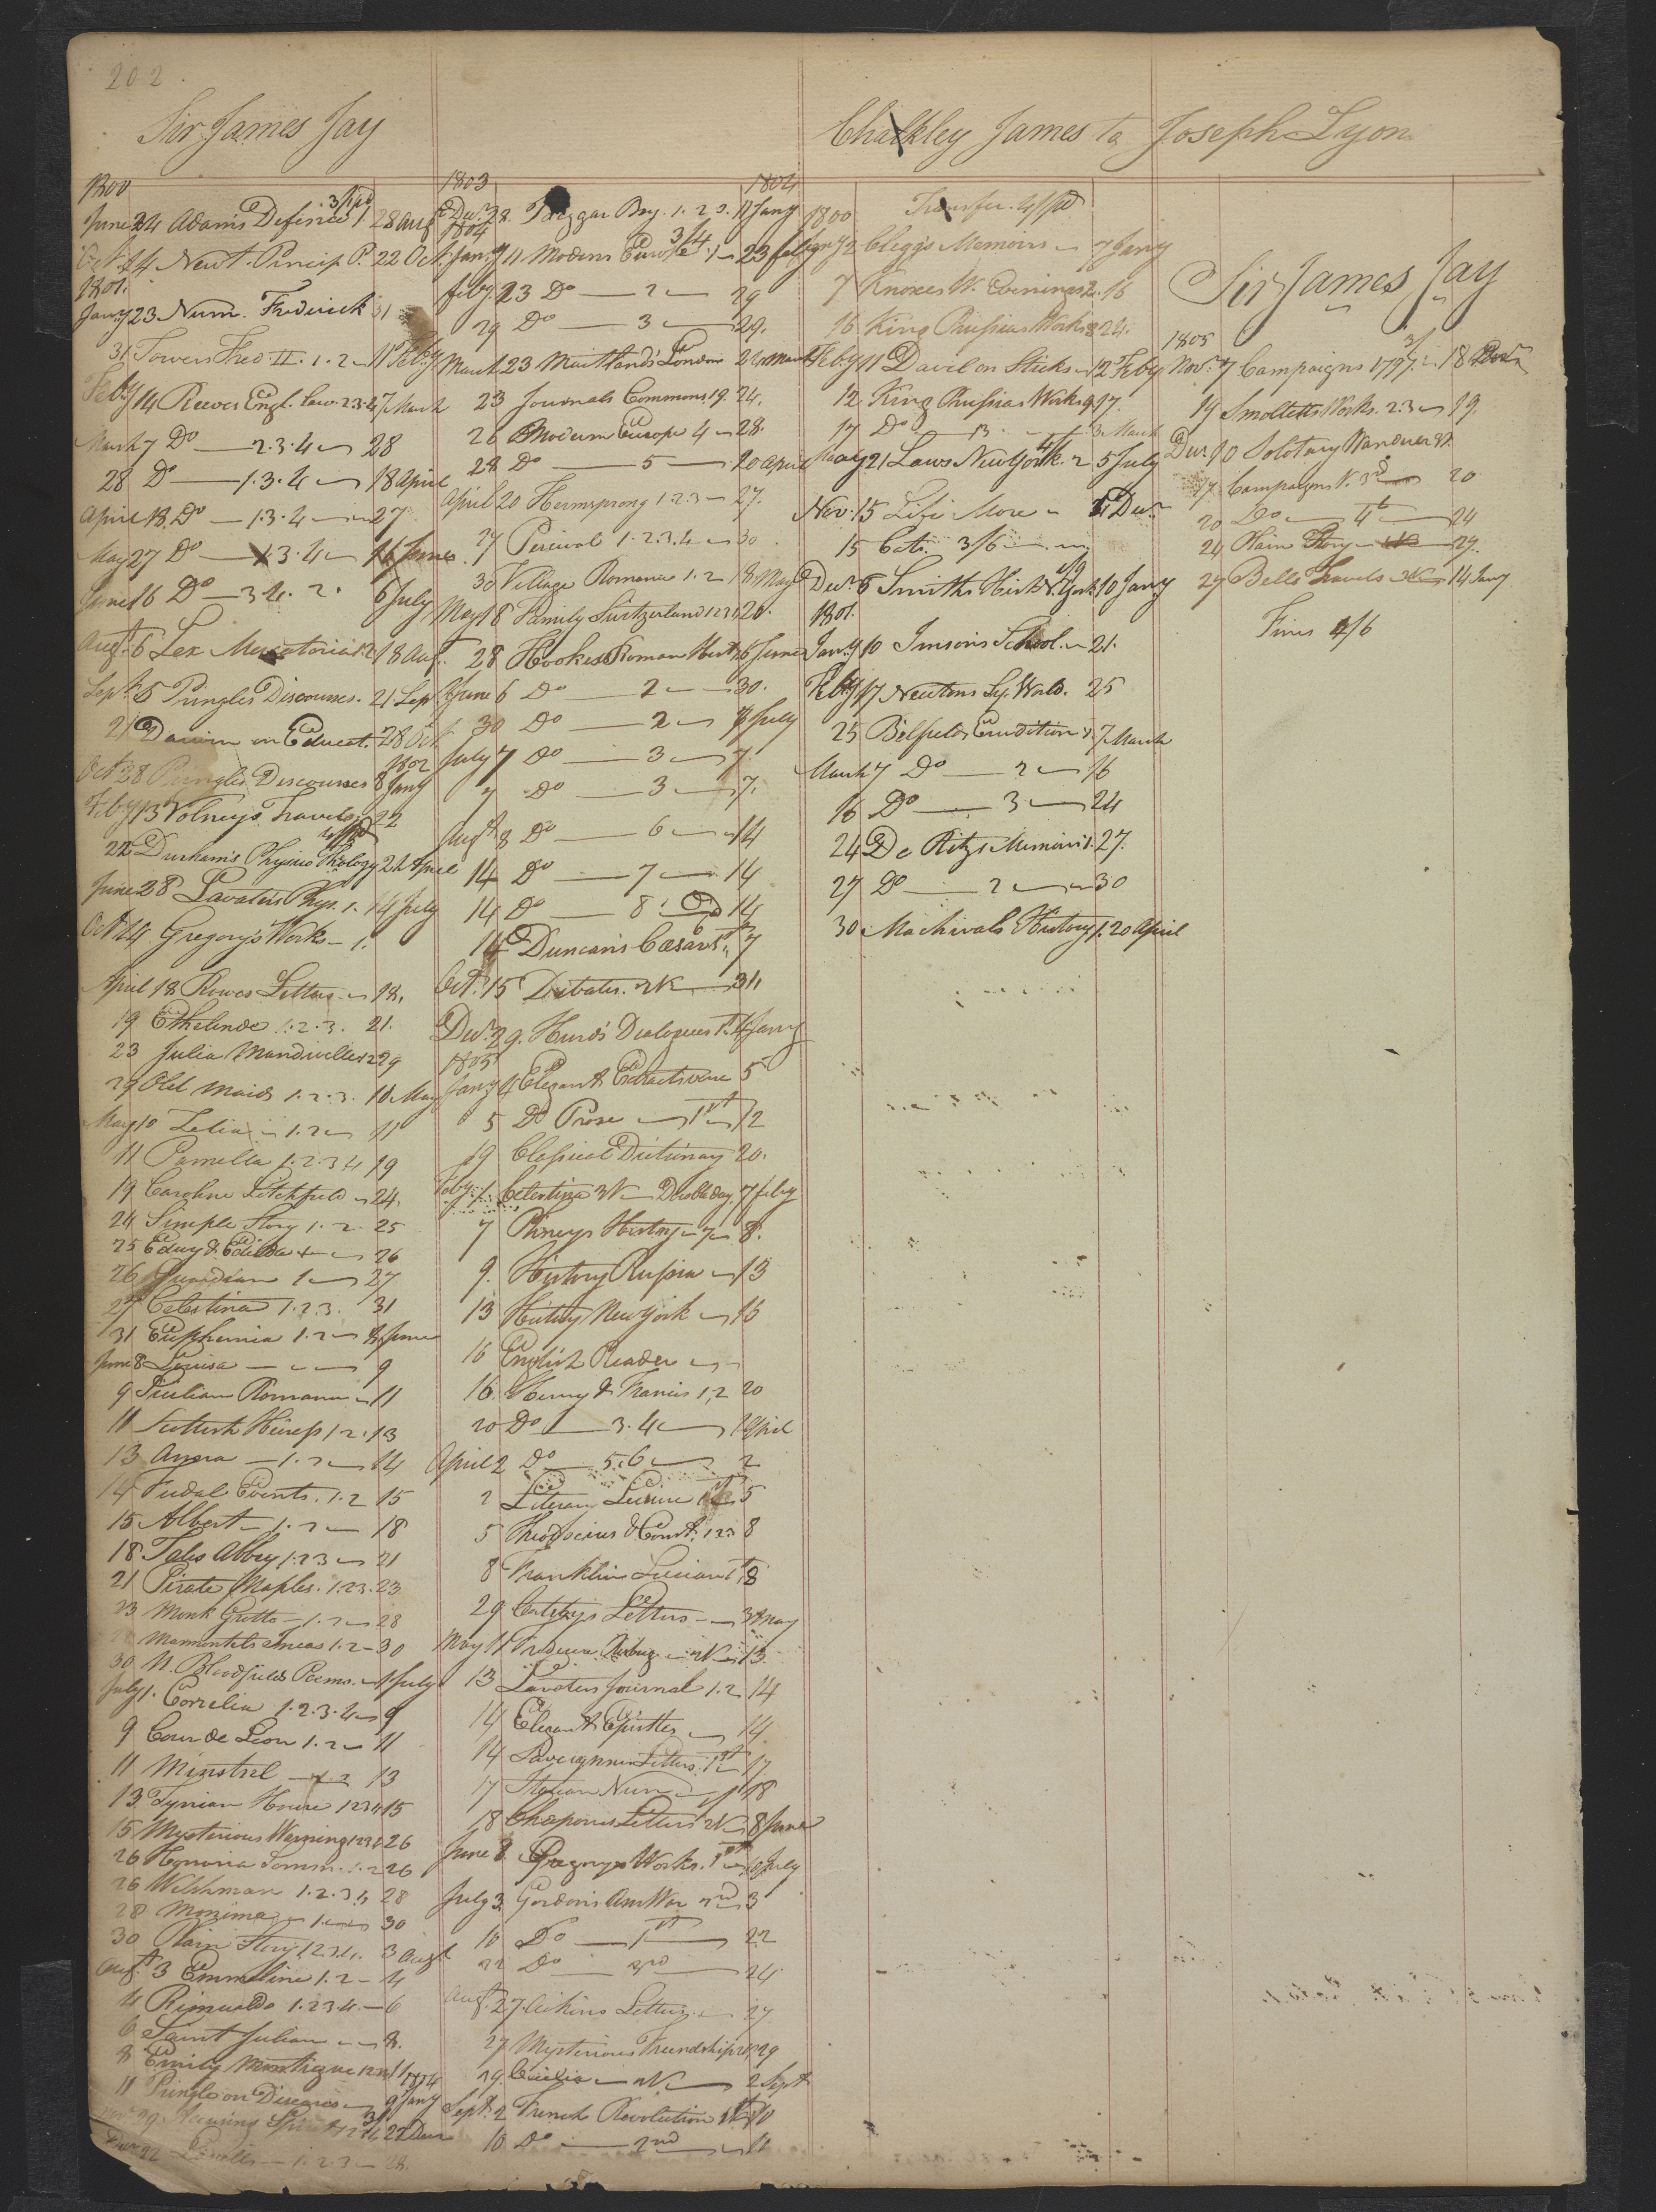 202
Sir James Jay
1800
3/ pd
June 24 Adams Defence 1. 28 Aug
Oct. 14 Newt. Princip P. 22 Oct
1801.
Jany 23 Num. Frederick 31
31 Towers Fred. II. 1.2 11 Feby
Feby 14 Reeves Engl. Law. 2.3.4 7 March
March 7 Do 2.3.4 28
28 Do 1.3.4 18 April
April 18 Do 1.3.4 27
May 27 Do 1.3.4 16 June
June 16 Do 3 4. 2. 6 July
Augt. 6 Lex Mercatoria 1.2 18 Augt.
Sept. 5 Pringles Discourses. 21 Sept
21 Darwin on Educat. 28 Oct
1802
Oct 28 Pringles Discourses 8 Jany
Feby 13 Volneys Travels 22
4/ pd
22 Durham's Physico Theology 24 April
June 28 Lavaters Phys. 1. 14 July
Oct 14 Gregory's Works 1.
April 18 Rowes Letters 18.
19 Ethelinde 1.2.3. 21.
23 Julia Mandiville 1 2 29
29 Old Maids 1.2.3. 10 May
May 10 Zelia 1.2 11
11 Pamella 1.2.3 4 19
19 Caroline Litchfield 24.
24 Simple Story 1.2. 25
25 Edwy & Edilda 26
26 Guardian 1 27
27 Celestina 1.2.3. 31
31 Euphemia 1.2 8 June
June 8 Louisa 9
9 Sicilian Romance 11
11 Scottish Heiress 1 2. 13
13 Anzra 1.2 14
14 Fudal Events. 1.2 15
15 Albert 1.2 18
18 Tales Abbey 1.2 3 21
21 Pirate Naples. 1.2 3. 23
23 Monk Grotto 1.2 28
Marmontels Incas 1.2 30
30 N. Bloodfields Poems. 1 July
July 1. Correlia 1.2.3.4 9
9 Cour de Leon 1.2 11
11 Minstrel 1.2 13
13 Tynian House 1 2 3 4 15
15 Mysterious Warning 1 2 3 4 26
26 Honoria Somm. 1.2 26
26 Welshman 1.2.3 4 28
28 Monima 1 30
30 Plain Story 1 2 3 4. 3 Augt
Augt 3 Emmeline 1.2 4
4 Rimualdo 1.2 3 4. 6
6 Saint Julian 8.
8 Emily Montague 1 2 3 4 11
1804
11 Pringle on Diseases 9 Jany
22 Decr
1803 1804
Decr. 28. Bry. 1.2 3. 11 Jany
1804
3/4
Jany 11 Modern Europe 1 23 feby
feby 23 Do 2 29
29 Do 3 29.
March 23 Maitlands London 24 March
23 Journals Commons 19. 24.
26 Modern Europe 4 28.
28 Do 5 20 April
April 20 Hermsprong 1.2.3 27.
27 Percival 1.2.3.4 30
30 Village Romance 1.2 18 May
May 18 Family Switzerland 1 2 3 4 26.
28 Hookes Roman Hist. 6 June
June 6 Do 2 30.
30 Do 2 7 July
July 7 Do 3 7
7 Do 3 7.
Augt 8 Do 6 14
14 Do 7 14
14 Do 8 14
14 Duncan's Cæsar 1st 7
Oct. 15 Debates. 2 V 31.
Decr. 29. Hurd's Dialogues 1st 4 Jany
1805
Jany 4 Elegant Extracts verse 5
5 Do Prose 1st 12
19 Classical Dictionary 20.
Feby. 1. Celestina 3 V 7 feby
7 History 7 8.
9. History Russia 13
13 History New York 16
16 English Reader
16 Henry & Francis 1.2 20
20 Do 3.4 1 April
April 2 Do 5.6 2
2 Literary Leisure 1st 5
5 Theodocius & Const. 1 2 3 8
8 Franklin 1st 8
29 Letters 3 May
May 11 2 V 13
13 Lavaters Journal 1.2 14
14 Elegant Epistles 14.
14 Letters. 1st 17
17 Italian Nun 18
18 Chapones Letters 2 V 8 June
June 8. Gregorys Works. 1st 10 July
July 3 Gordon's Am War 2nd 3
10 Do 1st 22
22 Do 3rd 24
Augt. 27 Aikins Letters 27
27 Mysterious Freindship 2 V 29
29. Cicelia 2 V 2 Sept
Sept. 2 French Revolution 1st 10
10 Do 2nd 11
Chalkley James to Joseph Lyon
Transfer. 4/ pd
1800
Jany 2 Cleggs Memoirs 7 Jany
7 Knoxes W. Evenings 2. 16
16 King Prussias Works 8 24.
Feby 11 Davel on Sticks 12 Feby
12 King Prussias Works 9 17.
17 Do 13 3 March
4/
May 21 Laws New York. 2 5 July
Nov. 15 Life More Decr.
15 Cat. 3/6
Decr. 6 Smiths Hist. N. York 10 Jany
1801.
Jany 10 Imson's School. 21.
Feby 17 Newtons Sy. World. 25
25 Bielfields Erudition 1. 7 March
March 7 Do 2 16
16 Do 3 24
24 De Ritzs Memoirs 1. 27.
27 Do 2 30
30 Machivals History 1. 20 April
Sir James Jay
1805
3/
Novr. 7 Campaigns 1797. 18
19 Smolletts Works. 2.3 19.
Decr. 10 Solotary Wanderer
17 Campaigns V. 3d 20
20 Do 4th 24
24 Plain Story 27.
27 Bells Travels 14 Jany
Fines 4/6